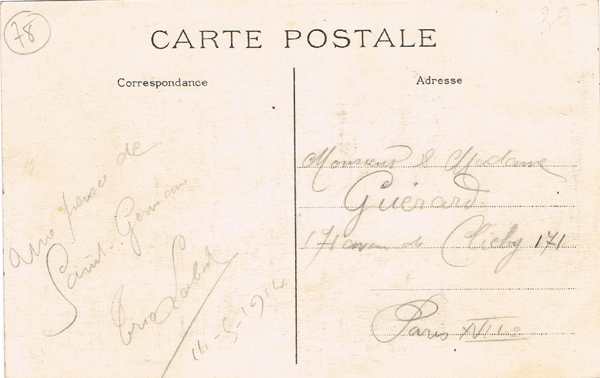 78
30
CARTE POSTALE
Correspondance
Adresse
Une pensée de
Saint-Germain
14-5-1914
Monsieur & Madame
Guérard
171 avenue de Clichy 171
Paris XVIIe